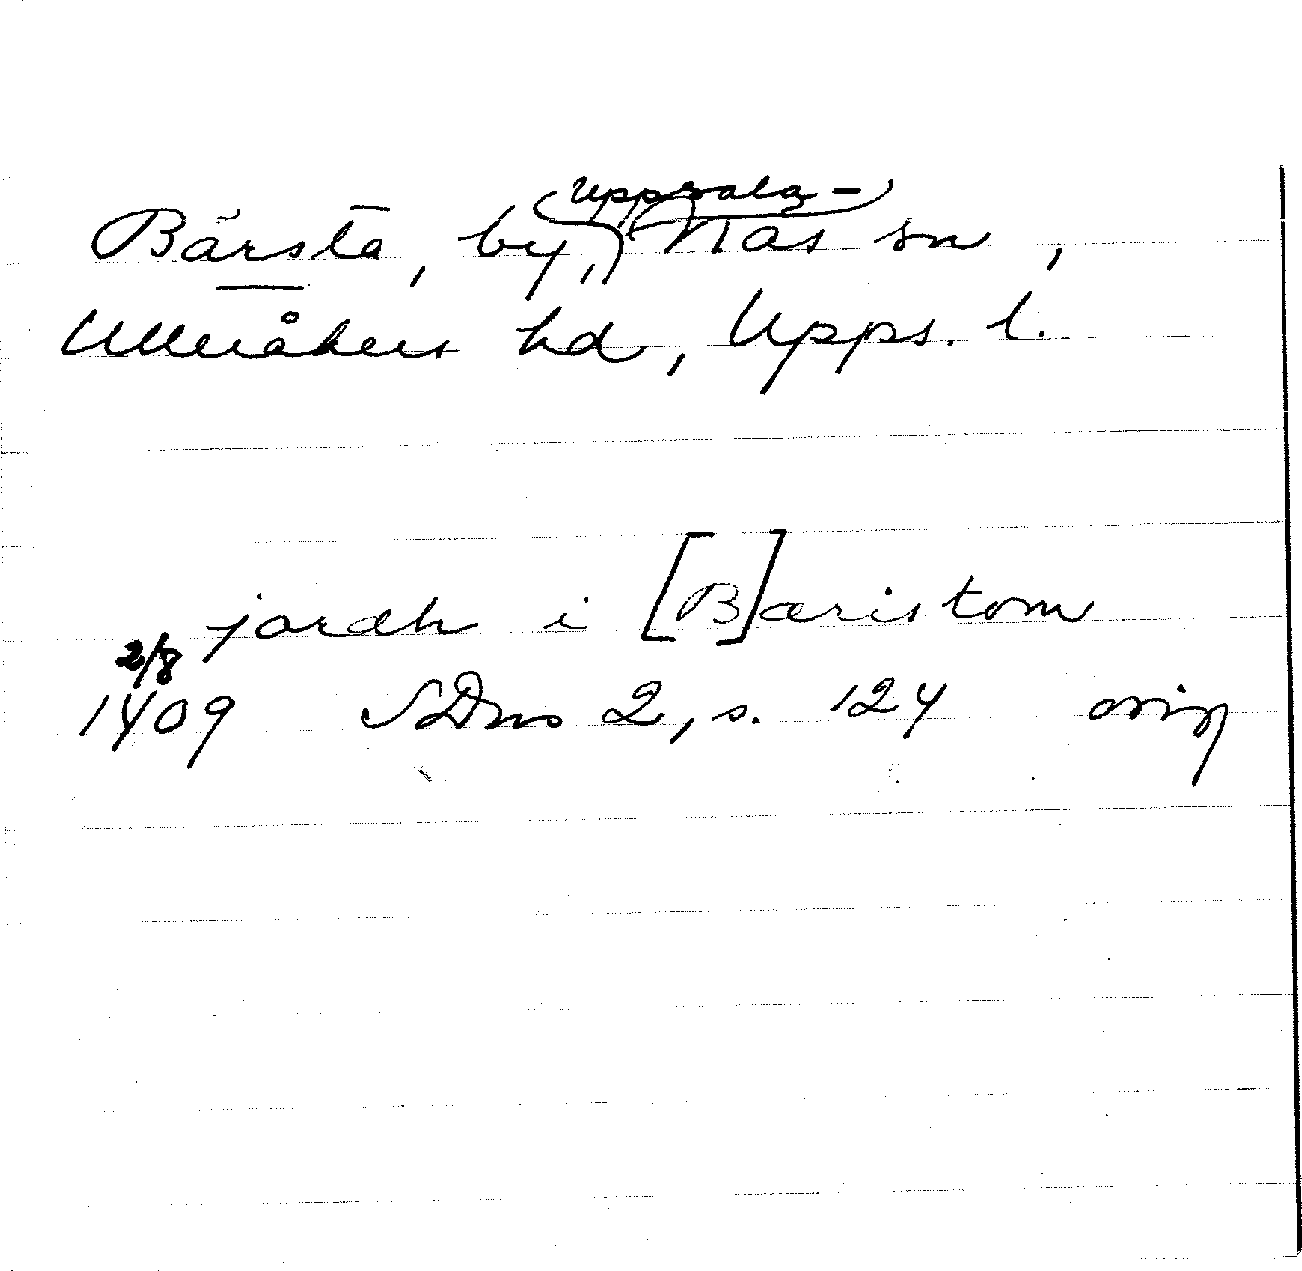 Bärsta, by, Uppsala-Näs sn,
Ulleråkers hd, Upps. l.
jordh i [B]æristom
2/8
1409 SDns 2, s. 124 orig